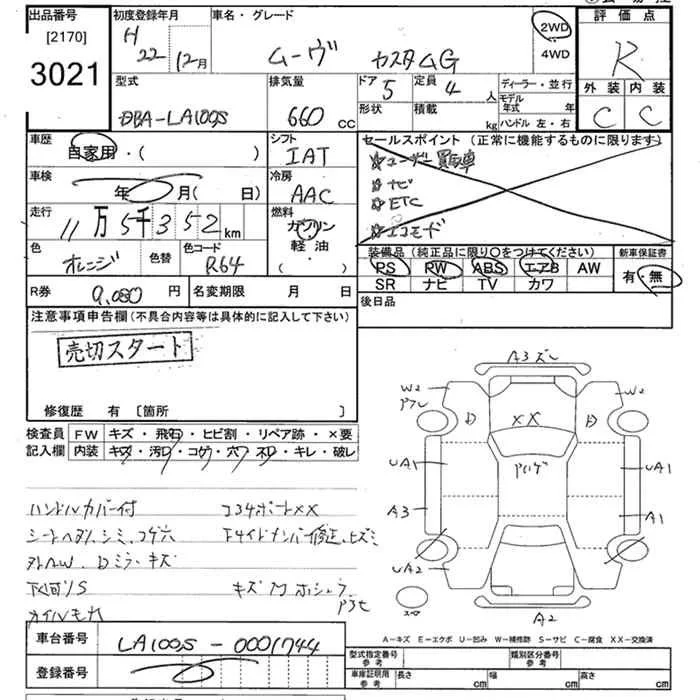 出品番号
[2170]
3021
初度登録年月
H 22年 12月
車名・グレード
ムーヴ カスタムG
2WD
4WD
評価点
R
外装 内装
C C
型式
DBA-LA100S
排気量
660 CC
ドア 5
定員 4 人
形状
積載 kg
ディーラー・並行
モデル年式 年
ハンドル 左・右
車歴
自家用・( )
シフト
IAT
車検
年 月( 日)
冷房
AAC
走行
11万5千352km
燃料
ガソリン
軽油
・( )
色
オレンジ
色替
色コード
R64
セールスポイント (正常に機能するものに限ります)
☆ユーザー買取車
☆ナビ
☆ETC
☆エコモード
装備品(純正品に限り○をつけてください)
PS PW ABS エアB AW
SR ナビ TV カワ
新車保証書
有・無
R券 9,080円
名変期限 月 日
後日品
注意事項申告欄(不具合内容等は具体的に記入して下さい)
売切スタート
修復歴 有 〔箇所 〕
検査員 FW キズ・飛石・ヒビ割・リペア跡・×要
記入欄 内装 キズ・汚レ・コゲ・穴・ネジ・キレ・破レ
ハンドルカバー付
シートヘタリ、シミ、コゲ穴
外AW、Dミラーキズ
下回リS
オイルモレ
コ34ポートXX
F4サイドメンバー修正、ヒズミ
A3ズレ
W2
W2
D
D
XX
UA1
UA1
A3
A1
UA2
A2
A−キズ E−エクボ U−凹み W−補修跡 S−サビ C−腐食 XX−交換済
車台番号
LA100S-0001744
登録番号
型式指定番号
参考
類別区分番号
参考
車庫証明用
参考
長さ cm
幅 cm
高さ cm